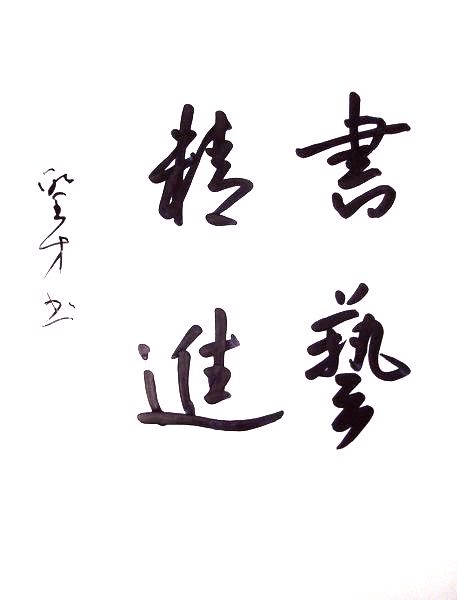 書藝
精進